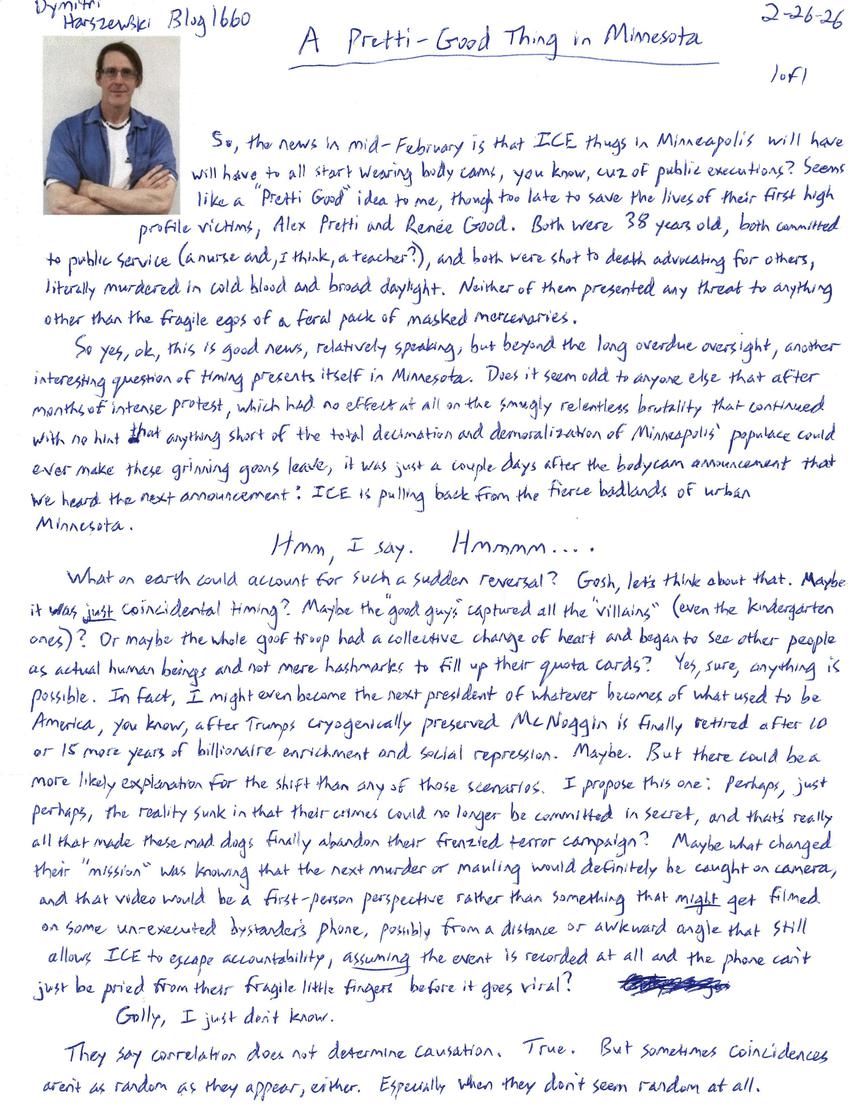 Dymitri
Harszewski Blog 1660
2-26-26
A Pretti-Good Thing in Minnesota
1 of 1
So, the news in mid-February is that ICE thugs in Minneapolis will have
will have to all start wearing body cams, you know, cuz of public executions? Seems
like a "Pretti Good" idea to me, though too late to save the lives of their first high
profile victims, Alex Pretti and Renée Good. Both were 38 years old, both committed
to public service (a nurse and, I think, a teacher?), and both were shot to death advocating for others,
literally murdered in cold blood and broad daylight. Neither of them presented any threat to anything
other than the fragile egos of a feral pack of masked mercenaries.
So yes, ok, this is good news, relatively speaking, but beyond the long overdue oversight, another
interesting question of timing presents itself in Minnesota. Does it seem odd to anyone else that after
months of intense protest, which had no effect at all on the smugly relentless brutality that continued
with no hint that anything short of the total decimation and demoralization of Minneapolis' populace could
ever make these grinning goons leave, it was just a couple days after the bodycam announcement that
we heard the next announcement: ICE is pulling back from the fierce badlands of urban
Minnesota.
Hmm, I say. Hmmmm....
What on earth could account for such a sudden reversal? Gosh, let's think about that. Maybe
it was just coincidental timing? Maybe the "good guys" captured all the "villains" (even the kindergarten
ones)? Or maybe the whole goof troop had a collective change of heart and began to see other people
as actual human beings and not mere hashmarks to fill up their quota cards? Yes, sure, anything is
possible. In fact, I might even become the next president of whatever becomes of what used to be
America, you know, after Trumps cryogenically preserved McNoggin is finally retired after 10
or 15 more years of billionaire enrichment and social repression. Maybe. But there could be a
more likely explanation for the shift than any of those scenarios. I propose this one: Perhaps, just
perhaps, the reality sunk in that their crimes could no longer be committed in secret, and that's really
all that made these mad dogs finally abandon their frenzied terror campaign? Maybe what changed
their "mission" was knowing that the next murder or mauling would definitely be caught on camera,
and that video would be a first-person perspective rather than something that might get filmed
on some un-executed bystander's phone, possibly from a distance or awkward angle that still
allows ICE to escape accountability, assuming the event is recorded at all and the phone can't
just be pried from their fragile little fingers before it goes viral?
Golly, I just don't know.
They say correlation does not determine causation. True. But sometimes coincidences
aren't as random as they appear, either. Especially when they don't seem random at all.